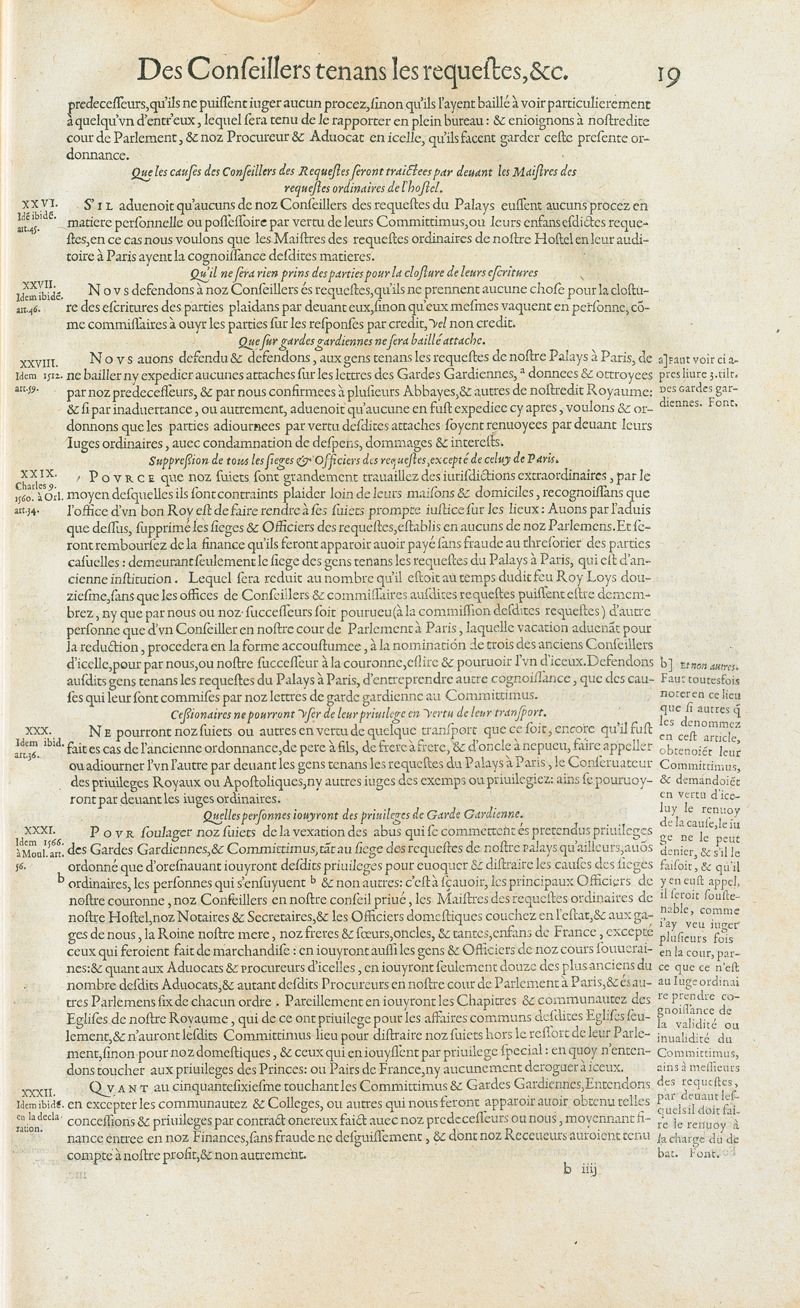 Des Conſeillers tenans les requeſtes,&c. 19
predeceſſeurs,qu'ils ne puiſſent iuger aucun procez,ſinon qu'ils l'ayent baillé à voir particulierement
à quelqu'vn d'entr'eux, lequel ſera tenu de le rapporter en plein bureau : & enioignons à noſtredite
cour de Parlement, & noz Procureur & Aduocat en icelle, qu'ils facent garder ceſte preſente or-
donnance.
Que les cauſes des Conſeillers des Requeſtes ſeront traictees par deuant les Maiſtres des
requeſtes ordinaires de l'hoſtel.
XXVI.
Idē ibidē.
art.45.
S'IL aduenoit qu'aucuns de noz Conſeillers des requeſtes du Palays euſſent aucuns procez en
matiere perſonnelle ou poſſeſſoire par vertu de leurs Committimus,ou leurs enfans eſdictes reque-
ſtes,en ce cas nous voulons que les Maiſtres des requeſtes ordinaires de noſtre Hoſtel en leur audi-
toire à Paris ayent la cognoiſſance deſdites matieres.
Qu'il ne ſera rien prins des parties pour la cloſture de leurs eſcritures
XXVII.
Idem ibidē.
art.46.
NOVS defendons à noz Conſeillers és requeſtes,qu'ils ne prennent aucune choſe pour la cloſtu-
re des eſcritures des parties plaidans par deuant eux,ſinon qu'eux meſmes vaquent en perſonne,cō-
me commiſſaires à ouyr les parties ſur les reſponſes par credit, vel non credit.
Que ſur gardes gardiennes ne ſera baillé attache.
XXVIII.
Idem 1512.
art.59.
NOVS auons defendu & defendons, aux gens tenans les requeſtes de noſtre Palays à Paris, de
ne bailler ny expedier aucunes attaches ſur les lettres des Gardes Gardiennes, a donnees & ottroyees
par noz predeceſſeurs, & par nous confirmees à pluſieurs Abbayes,& autres de noſtredit Royaume:
& ſi par inaduertance, ou autrement, aduenoit qu'aucune en fuſt expediee cy apres, voulons & or-
donnons que les parties adiournees par vertu deſdites attaches ſoyent renuoyees par deuant leurs
Iuges ordinaires, auec condamnation de deſpens, dommages & intereſts.
a] Faut voir ci a-
pres liure 3.tilt.
Des Gardes gar-
diennes. Font.
Suppreſsion de tous les ſieges & Officiers des requeſtes,excepté de celuy de Paris.
XXIX.
Charles 9.
1560. à Orl.
art.34.
POVRCE que noz ſuiets ſont grandement trauaillez des iuriſdictions extraordinaires, par le
moyen deſquelles ils ſont contraints plaider loin de leurs maiſons & domiciles, recognoiſſans que
l'office d'vn bon Roy eſt de faire rendre à ſes ſuiets prompte iuſtice ſur les lieux : Auons par l'aduis
que deſſus, ſupprimé les ſieges & Officiers des requeſtes,eſtablis en aucuns de noz Parlemens.Et ſe-
ront rembourſez de la finance qu'ils feront apparoir auoir payé ſans fraude au threſorier des parties
caſuelles : demeurant ſeulement le ſiege des gens tenans les requeſtes du Palays à Paris, qui eſt d'an-
cienne inſtitution. Lequel ſera reduit au nombre qu'il eſtoit au temps dudit feu Roy Loys dou-
zieſme,ſans que les offices de Conſeillers & commiſſaires auſdites requeſtes puiſſent eſtre demem-
brez, ny que par nous ou noz ſucceſſeurs ſoit pourueu (à la commiſſion deſdites requeſtes) d'autre
perſonne que d'vn Conſeiller en noſtre cour de Parlement à Paris, laquelle vacation aduenāt pour
la reduction, procedera en la forme accouſtumee, à la nominatiō de trois des anciens Conſeillers
d'icelle,pour par nous,ou noſtre ſucceſſeur à la couronne,eſlire & pouruoir l'vn d'iceux.Defendons
auſdits gens tenans les requeſtes du Palays à Paris, d'entreprendre autre cognoiſſance, que des cau-
ſes qui leur ſont commiſes par noz lettres de garde gardienne au Committimus.
Ceſsionaires ne pourront vſer de leur priuilege en vertu de leur tranſport.
XXX.
Idem ibid.
art.36.
NE pourront noz ſuiets ou autres en vertu de quelque tranſport que ce ſoit, encore qu'il fuſt
fait es cas de l'ancienne ordonnance,de pere à fils, de frere à frere, & d'oncle à nepueu, faire appeller
ou adiourner l'vn l'autre par deuant les gens tenans les requeſtes du Palays à Paris, le Conſeruateur
des priuileges Royaux ou Apoſtoliques,ny autres iuges des exemps ou priuilegiez: ains ſe pouruoy-
ront par deuant les iuges ordinaires.
Quelles perſonnes iouyront des priuileges de Garde Gardienne.
XXXI.
Idem 1566.
à Moul. art.
56.
POVR ſoulager noz ſuiets de la vexation des abus qui ſe commettent és pretendus priuileges
des Gardes Gardiennes,& Committimus,tāt au ſiege des requeſtes de noſtre Palays qu'ailleurs,auōs
ordonné que d'oreſnauant iouyront deſdits priuileges pour euoquer & diſtraire les cauſes des ſieges
b ordinaires, les perſonnes qui s'enſuyuent b & non autres: c'eſt à ſçauoir, les principaux Officiers de
noſtre couronne, noz Conſeillers en noſtre conſeil priué, les Maiſtres des requeſtes ordinaires de
noſtre Hoſtel,noz Notaires & Secretaires,& les Officiers domeſtiques couchez en l'eſtat,& aux ga-
ges de nous, la Roine noſtre mere, noz freres & ſœurs,oncles, & tantes,enfans de France, excepté
ceux qui feroient fait de marchandiſe : en iouyront auſſi les gens & Officiers de noz cours ſouuerai-
nes:& quant aux Aduocats & Procureurs d'icelles, en iouyront ſeulement douze des plus anciens du
nombre deſdits Aduocats,& autant deſdits Procureurs en noſtre cour de Parlement à Paris,& és au-
tres Parlemens ſix de chacun ordre. Pareillement en iouyront les Chapitres & communautez des
Egliſes de noſtre Royaume, qui de ce ont priuilege pour les affaires communs deſdites Egliſes ſeu-
lement,& n'auront leſdits Committimus lieu pour diſtraire noz ſuiets hors le reſſort de leur Parle-
ment,ſinon pour noz domeſtiques, & ceux qui en iouyſſent par priuilege ſpecial : en quoy n'enten-
dons toucher aux priuileges des Princes: ou Pairs de France,ny aucunement deroguer à iceux.
b] Et non autres.
Faut toutesfois
noter en ce lieu
que ſi autres q̄
les denommez
en ceſt article,
obtenoiēt leur
Committimus,
& demandoiēt
en vertu d'ice-
luy le renuoy
de la cauſe,le iu
ge ne le peut
denier, & s'il le
faiſoit, & qu'il
y en euſt appel,
il ſeroit ſouſte-
nable, comme
i'ay veu iuger
pluſieurs fois
en la cour, par-
ce que ce n'eſt
au Iuge ordinai
re prendre co-
gnoiſſance de
la validité ou
inualidité du
Committimus,
ains à meſſieurs
des requeſtes,
par deuant leſ-
quels il doit fai-
re le renuoy à
la charge du de
bat. Font.
XXXII.
Idem ibidē.
en la decla-
ration.
QVANT au cinquanteſixieſme touchant les Committimus & Gardes Gardiennes,Entendons
en excepter les communautez & Colleges, ou autres qui nous feront apparoir auoir obtenu telles
conceſſions & priuileges par contract onereux faict auec noz predeceſſeurs ou nous, moyennant fi-
nance entree en noz Finances,ſans fraude ne deſguiſſement, & dont noz Receueurs auroient tenu
compte à noſtre profit,& non autrement.
b iiij